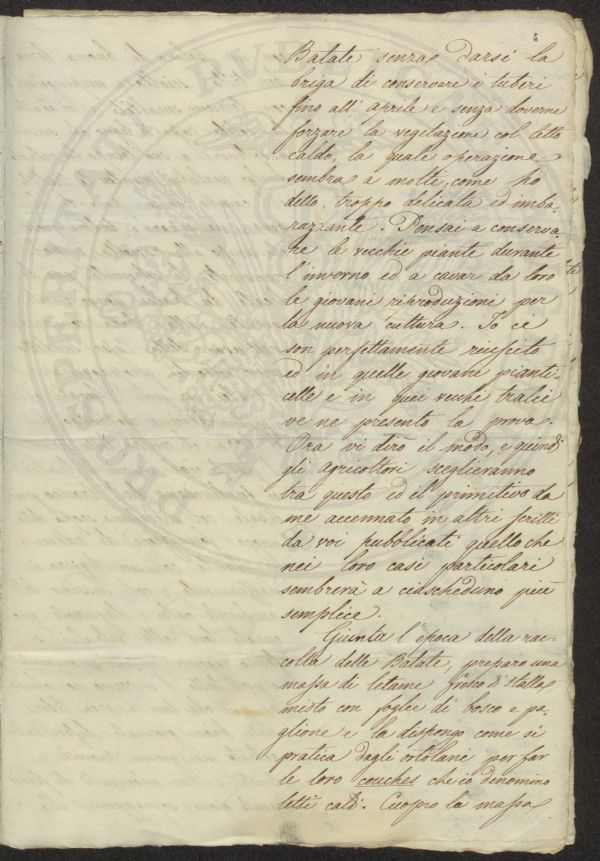 6
Batate senza darsi la
briga di conservare i tuberi
fino all' aprile e senza doverne
forzare la vegetazione col letto
caldo, la quale operazione
sembra a molti, come ho
detto, troppo delicata ed imba-
razzante. Pensai a conserva-
re le vecchie piante durante
l'inverno ed a cavar da loro
le giovani riproduzioni per
la nuova cultura. Io ci
son perfettamente riuscito
ed in quelle giovani pianti
celle e in quei vecchi tralci
ve ne presento la prova.
Ora vi dirò il modo, e quindi
gli agricoltori sceglieranno
tra questo ed il primitivo da
me accennato in altri scritti
da voi pubblicati quello che
nei loro casi particolari
sembrerà a ciascheduno più
semplice.
Giunta l'epoca della rac-
colta delle Batate, preparo una
massa di letame fresco di stalla
misto con foglie di bosco e pa-
glione e la dispongo come si
pratica dagli ortolani per far
le loro couches che io denomino
letti caldi. Cuopro la massa
PROSPERITATI PUBL